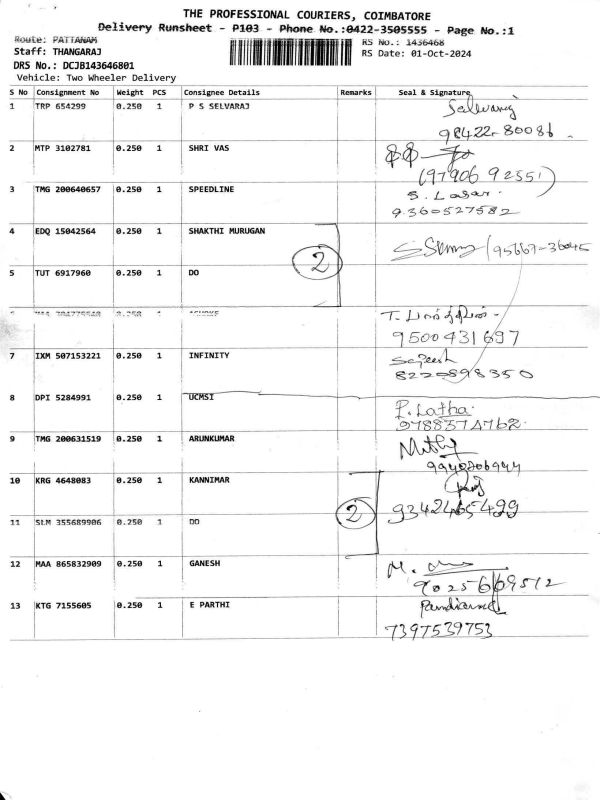 THE PROFESSIONAL COURIERS, COIMBATORE
Delivery Runsheet - P103 - Phone No.:0422-3505555 - Page No.:1
Route: PATTANAM
RS No.: 1436468
Staff: THANGARAJ
RS Date: 01-Oct-2024
DRS No.: DCJB143646801
Vehicle: Two Wheeler Delivery
S No Consignment No Weight PCS Consignee Details Remarks Seal & Signature
1 TRP 654299 0.250 1 P S SELVARAJ Selvaraj
98422-80086
2 MTP 3102781 0.250 1 SHRI VAS
(97906 92551)
3 TMG 200640657 0.250 1 SPEEDLINE S. Lasar.
9360527582
4 EDQ 15042564 0.250 1 SHAKTHI MURUGAN (95667-36045
2
5 TUT 6917960 0.250 1 DO
0.250 1 T.
9500431697
7 IXM 507153221 0.250 1 INFINITY Sajeesh
8220898350
8 DPI 5284991 0.250 1 UCMSI P. Latha.
9788374762.
9 TMG 200631519 0.250 1 ARUNKUMAR
10 KRG 4648083 0.250 1 KANNIMAR
2
9342465499
11 SLM 355689906 0.250 1 DO
12 MAA 865832909 0.250 1 GANESH M.
9025669512
13 KTG 7155605 0.250 1 E PARTHI
7397539753